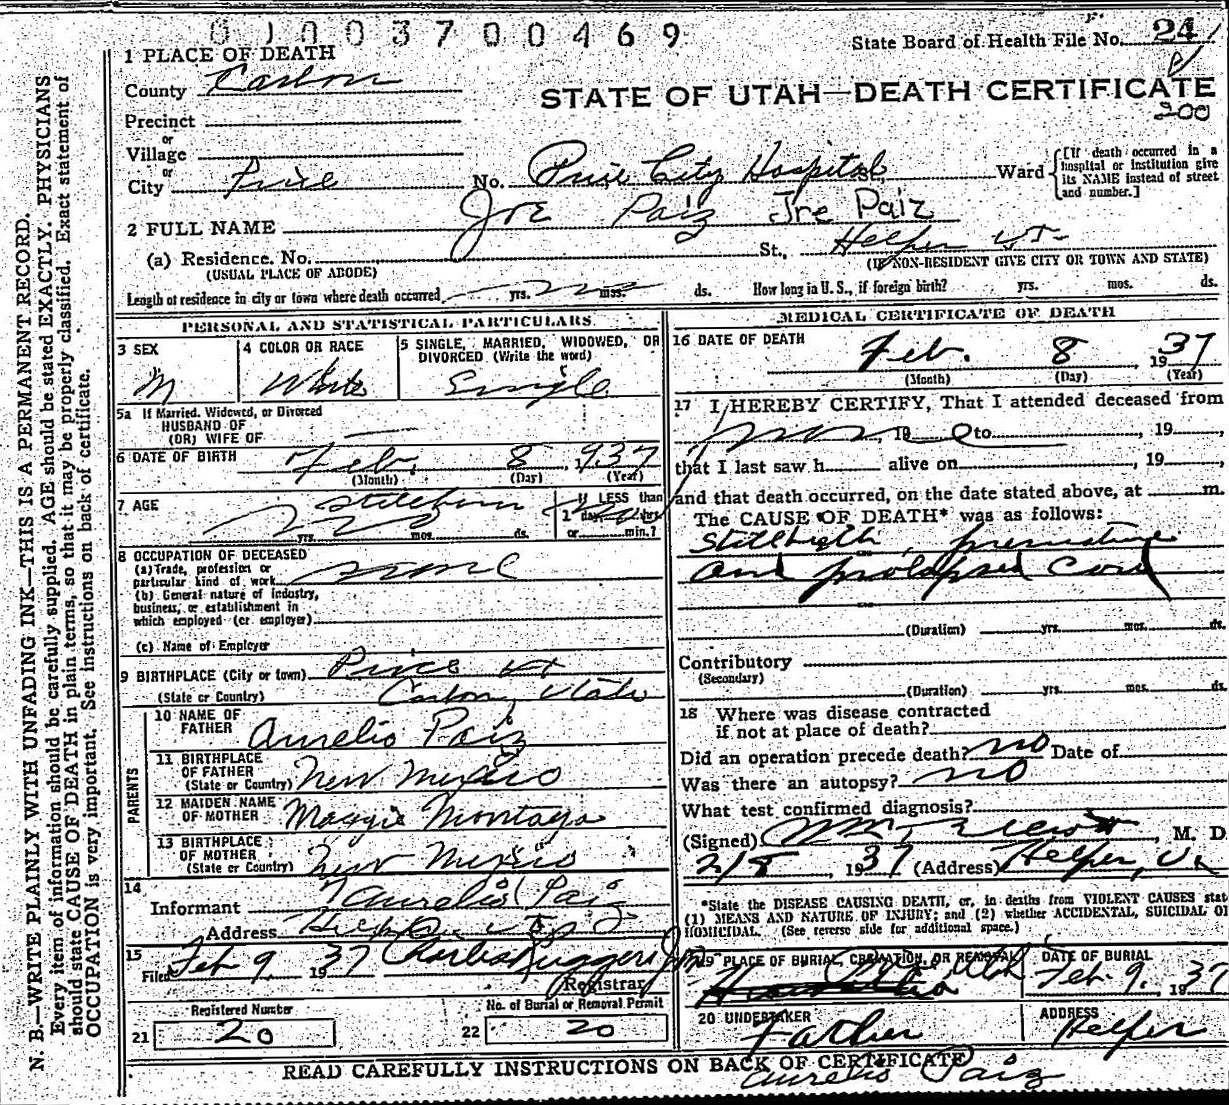 0 1 0 0 3 7 0 0 4 6 9
State Board of Health File No. 24
1 PLACE OF DEATH
County Carbon
STATE OF UTAH—DEATH CERTIFICATE
200
Precinct
or
Village
or
City Price No. Price City Hospital Ward [If death occurred in a hospital or institution give its NAME instead of street and number.]
2 FULL NAME Joe Paiz Joe Paiz
(a) Residence. No. St., Helper Ut
(USUAL PLACE OF ABODE) (IF NON-RESIDENT GIVE CITY OR TOWN AND STATE)
Length of residence in city or town where death occurred yrs. mos. ds. How long in U. S., if foreign birth? yrs. mos. ds.
PERSONAL AND STATISTICAL PARTICULARS
3 SEX M
4 COLOR OR RACE White
5 SINGLE, MARRIED, WIDOWED, OR DIVORCED (Write the word) Single
5a If Married, Widowed, or Divorced
HUSBAND OF
(OR) WIFE OF
6 DATE OF BIRTH Feb. 8 1937
(Month) (Day) (Year)
7 AGE Stillborn
yrs. mos. ds.
If LESS than
1 day, hrs
or min.?
8 OCCUPATION OF DECEASED
(a) Trade, profession or
particular kind of work none
(b) General nature of industry,
business, or establishment in
which employed (or employer)
(c) Name of Employer
9 BIRTHPLACE (City or town) Price Ut
(State or Country) Carbon, Utah
PARENTS
10 NAME OF FATHER Aurelio Paiz
11 BIRTHPLACE OF FATHER (State or Country) New Mexico
12 MAIDEN NAME OF MOTHER Maggie Montoya
13 BIRTHPLACE OF MOTHER (State or Country) New Mexico
14
Informant Aurelio Paiz
Address
15
Filed Feb 9, 1937 Charles Ruggeri Jr.
Registrar
Registered Number
21 20
No. of Burial or Removal Permit
22 20
MEDICAL CERTIFICATE OF DEATH
16 DATE OF DEATH Feb. 8 1937
(Month) (Day) (Year)
17 I HEREBY CERTIFY, That I attended deceased from
, 19 to , 19 ,
that I last saw h alive on , 19 ,
and that death occurred, on the date stated above, at m.
The CAUSE OF DEATH* was as follows:
Stillbirth, premature
and prolapsed cord
(Duration) yrs. mos. ds.
Contributory
(Secondary)
(Duration) yrs. mos. ds.
18 Where was disease contracted
if not at place of death?
Did an operation precede death? no Date of
Was there an autopsy? no
What test confirmed diagnosis?
(Signed) , M. D.
2/8, 1937 (Address) Helper, Ut
*State the DISEASE CAUSING DEATH, or, in deaths from VIOLENT CAUSES stat
(1) MEANS AND NATURE OF INJURY; and (2) whether ACCIDENTAL, SUICIDAL OR
HOMICIDAL. (See reverse side for additional space.)
19 PLACE OF BURIAL, CREMATION, OR REMOVAL Utah
DATE OF BURIAL Feb 9, 1937
20 UNDERTAKER Father
ADDRESS Helper
READ CAREFULLY INSTRUCTIONS ON BACK OF CERTIFICATE
Aurelio Paiz
N. B.—WRITE PLAINLY WITH UNFADING INK—THIS IS A PERMANENT RECORD.
Every item of information should be carefully supplied. AGE should be stated EXACTLY. PHYSICIANS
should state CAUSE OF DEATH in plain terms, so that it may be properly classified. Exact statement of
OCCUPATION is very important. See instructions on back of certificate.